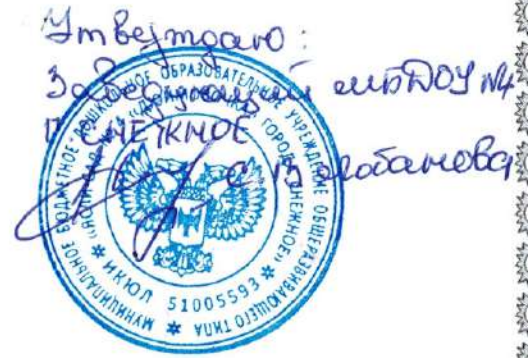 Утверждаю:
Заведующий МБДОУ №4
г. СНЕЖНОЕ
С В Лобанова
МУНИЦИПАЛЬНОЕ БЮДЖЕТНОЕ ДОШКОЛЬНОЕ ОБРАЗОВАТЕЛЬНОЕ УЧРЕЖДЕНИЕ ОБЩЕРАЗВИВАЮЩЕГО ТИПА
ГОРОДА СНЕЖНОЕ»
ИКЮЛ 51005593